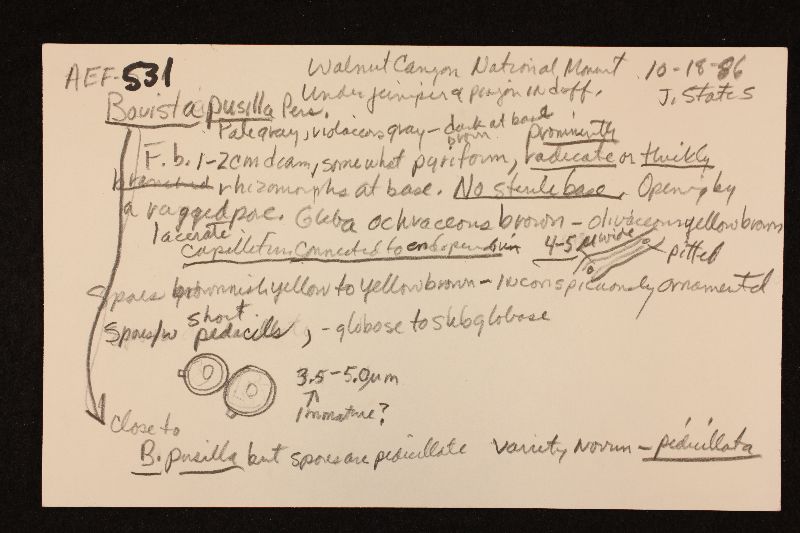 AEF-531 Walnut Canyon National Monumt 10-18-86
Under juniper & pinyon in duff. J. States
Bovista pusilla Pers.
Pale gray, violaceous gray - dark at base
brown Prominently
F.b. 1-2cm diam, somewhat pyriform, radicate or thickly
branched rhizomorphs at base. No sterile base. Opening by
a ragged pore. Gleba ochraceous brown - olivaceous yellow brown
lacerate
capillitium connected to endoperidium 4-5 µ wide pitted
Spores brownish yellow to yellow brown - inconspicuously ornamented
short
Spores/w pedicills, - globose to subglobose
3.5-5.0µm
Immature?
close to
B. pusilla but spores are pedicillate Variety Novum - pedicillata